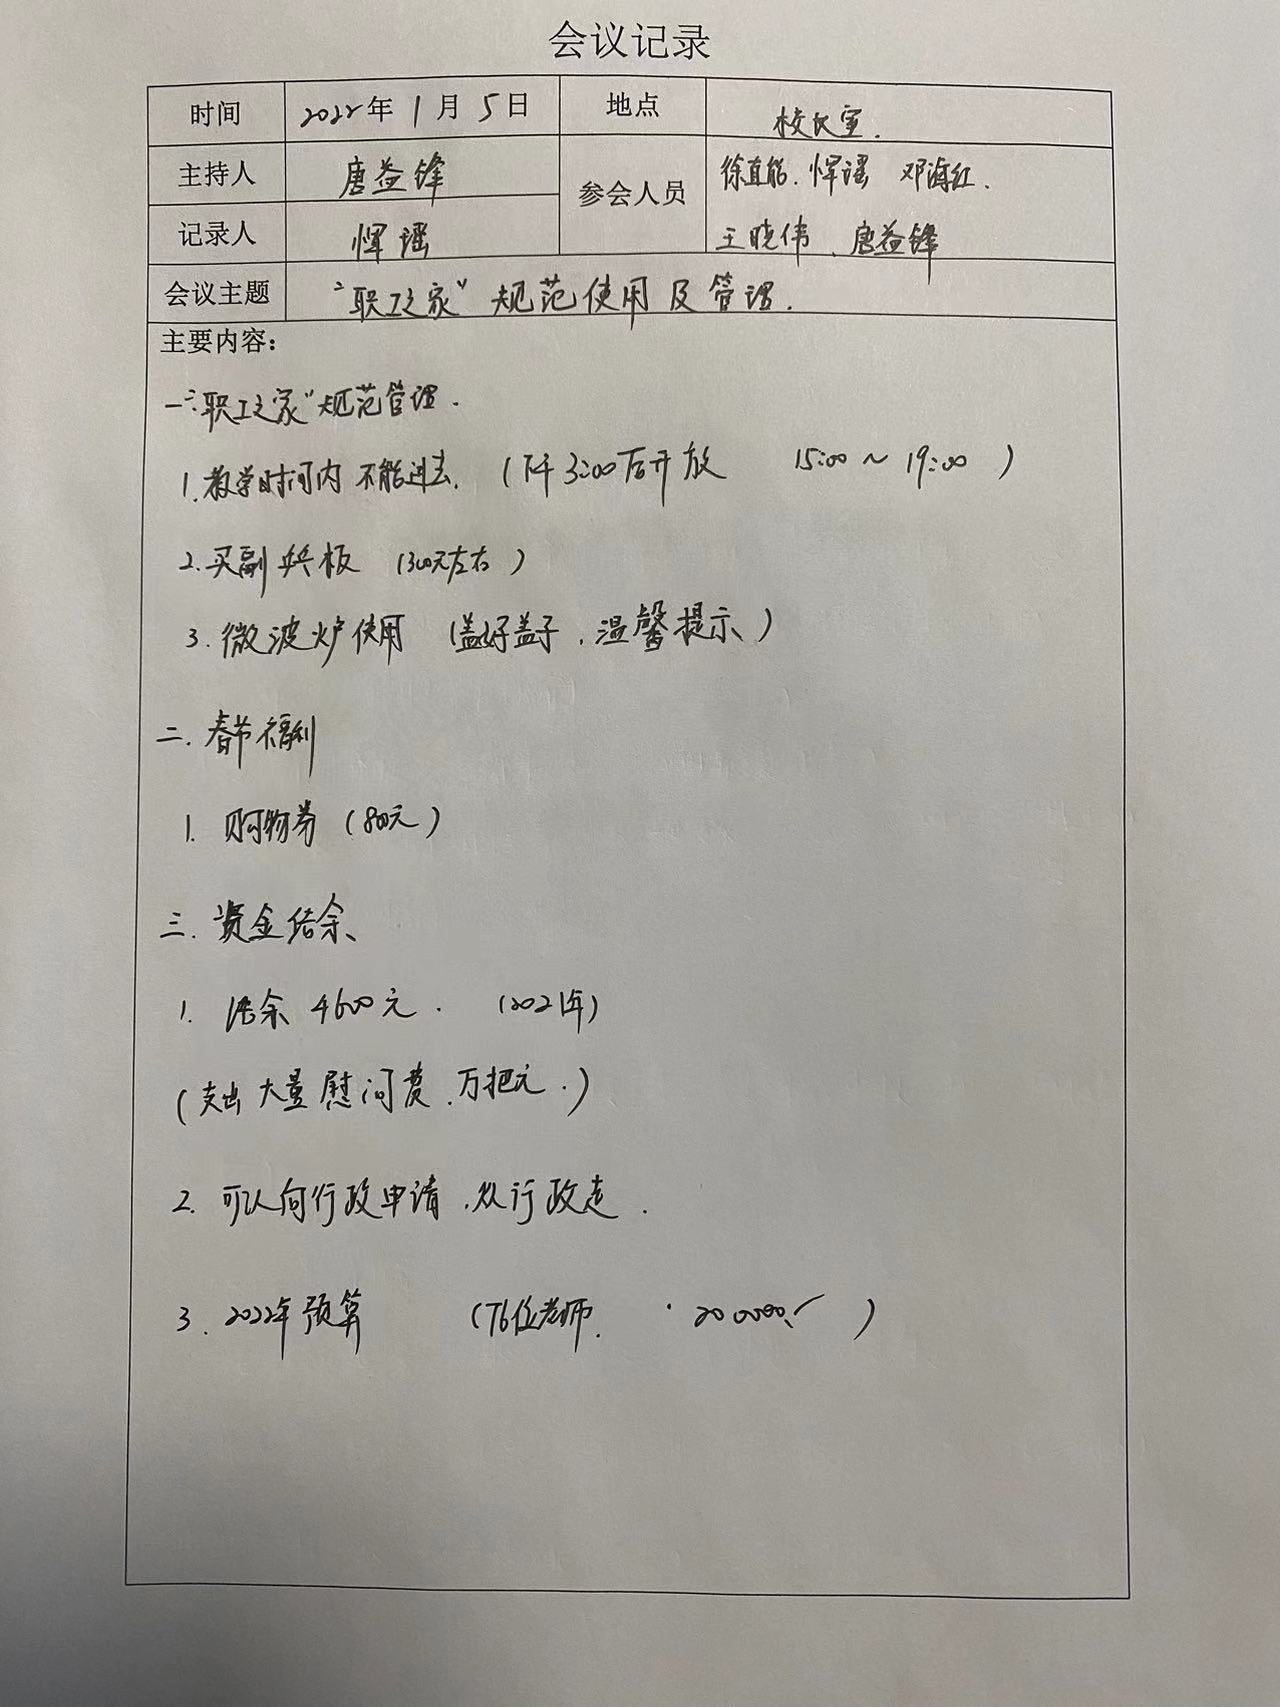 会议记录
时间 2022年1月5日 地点 校长室.
主持人 唐益锋 参会人员 徐直能. 恽谣 邓海红.
记录人 恽谣 王晓伟、唐益锋
会议主题 “职工之家”规范使用及管理.
主要内容：
一.“职工之家”规范管理.
1.教学时间内不能进去. (下午3:00后开放 15:00~19:00)
2.买副乒板 (300元左右)
3.微波炉使用 (盖好盖子.温馨提示)
二.春节福利
1.购物券(800元)
三.资金结余
1.结余4600元. (2021年)
(支出大量慰问费.万把元.)
2.可以向行政申请.从行政走.
3.2022年预算 (76位老师. 200000)